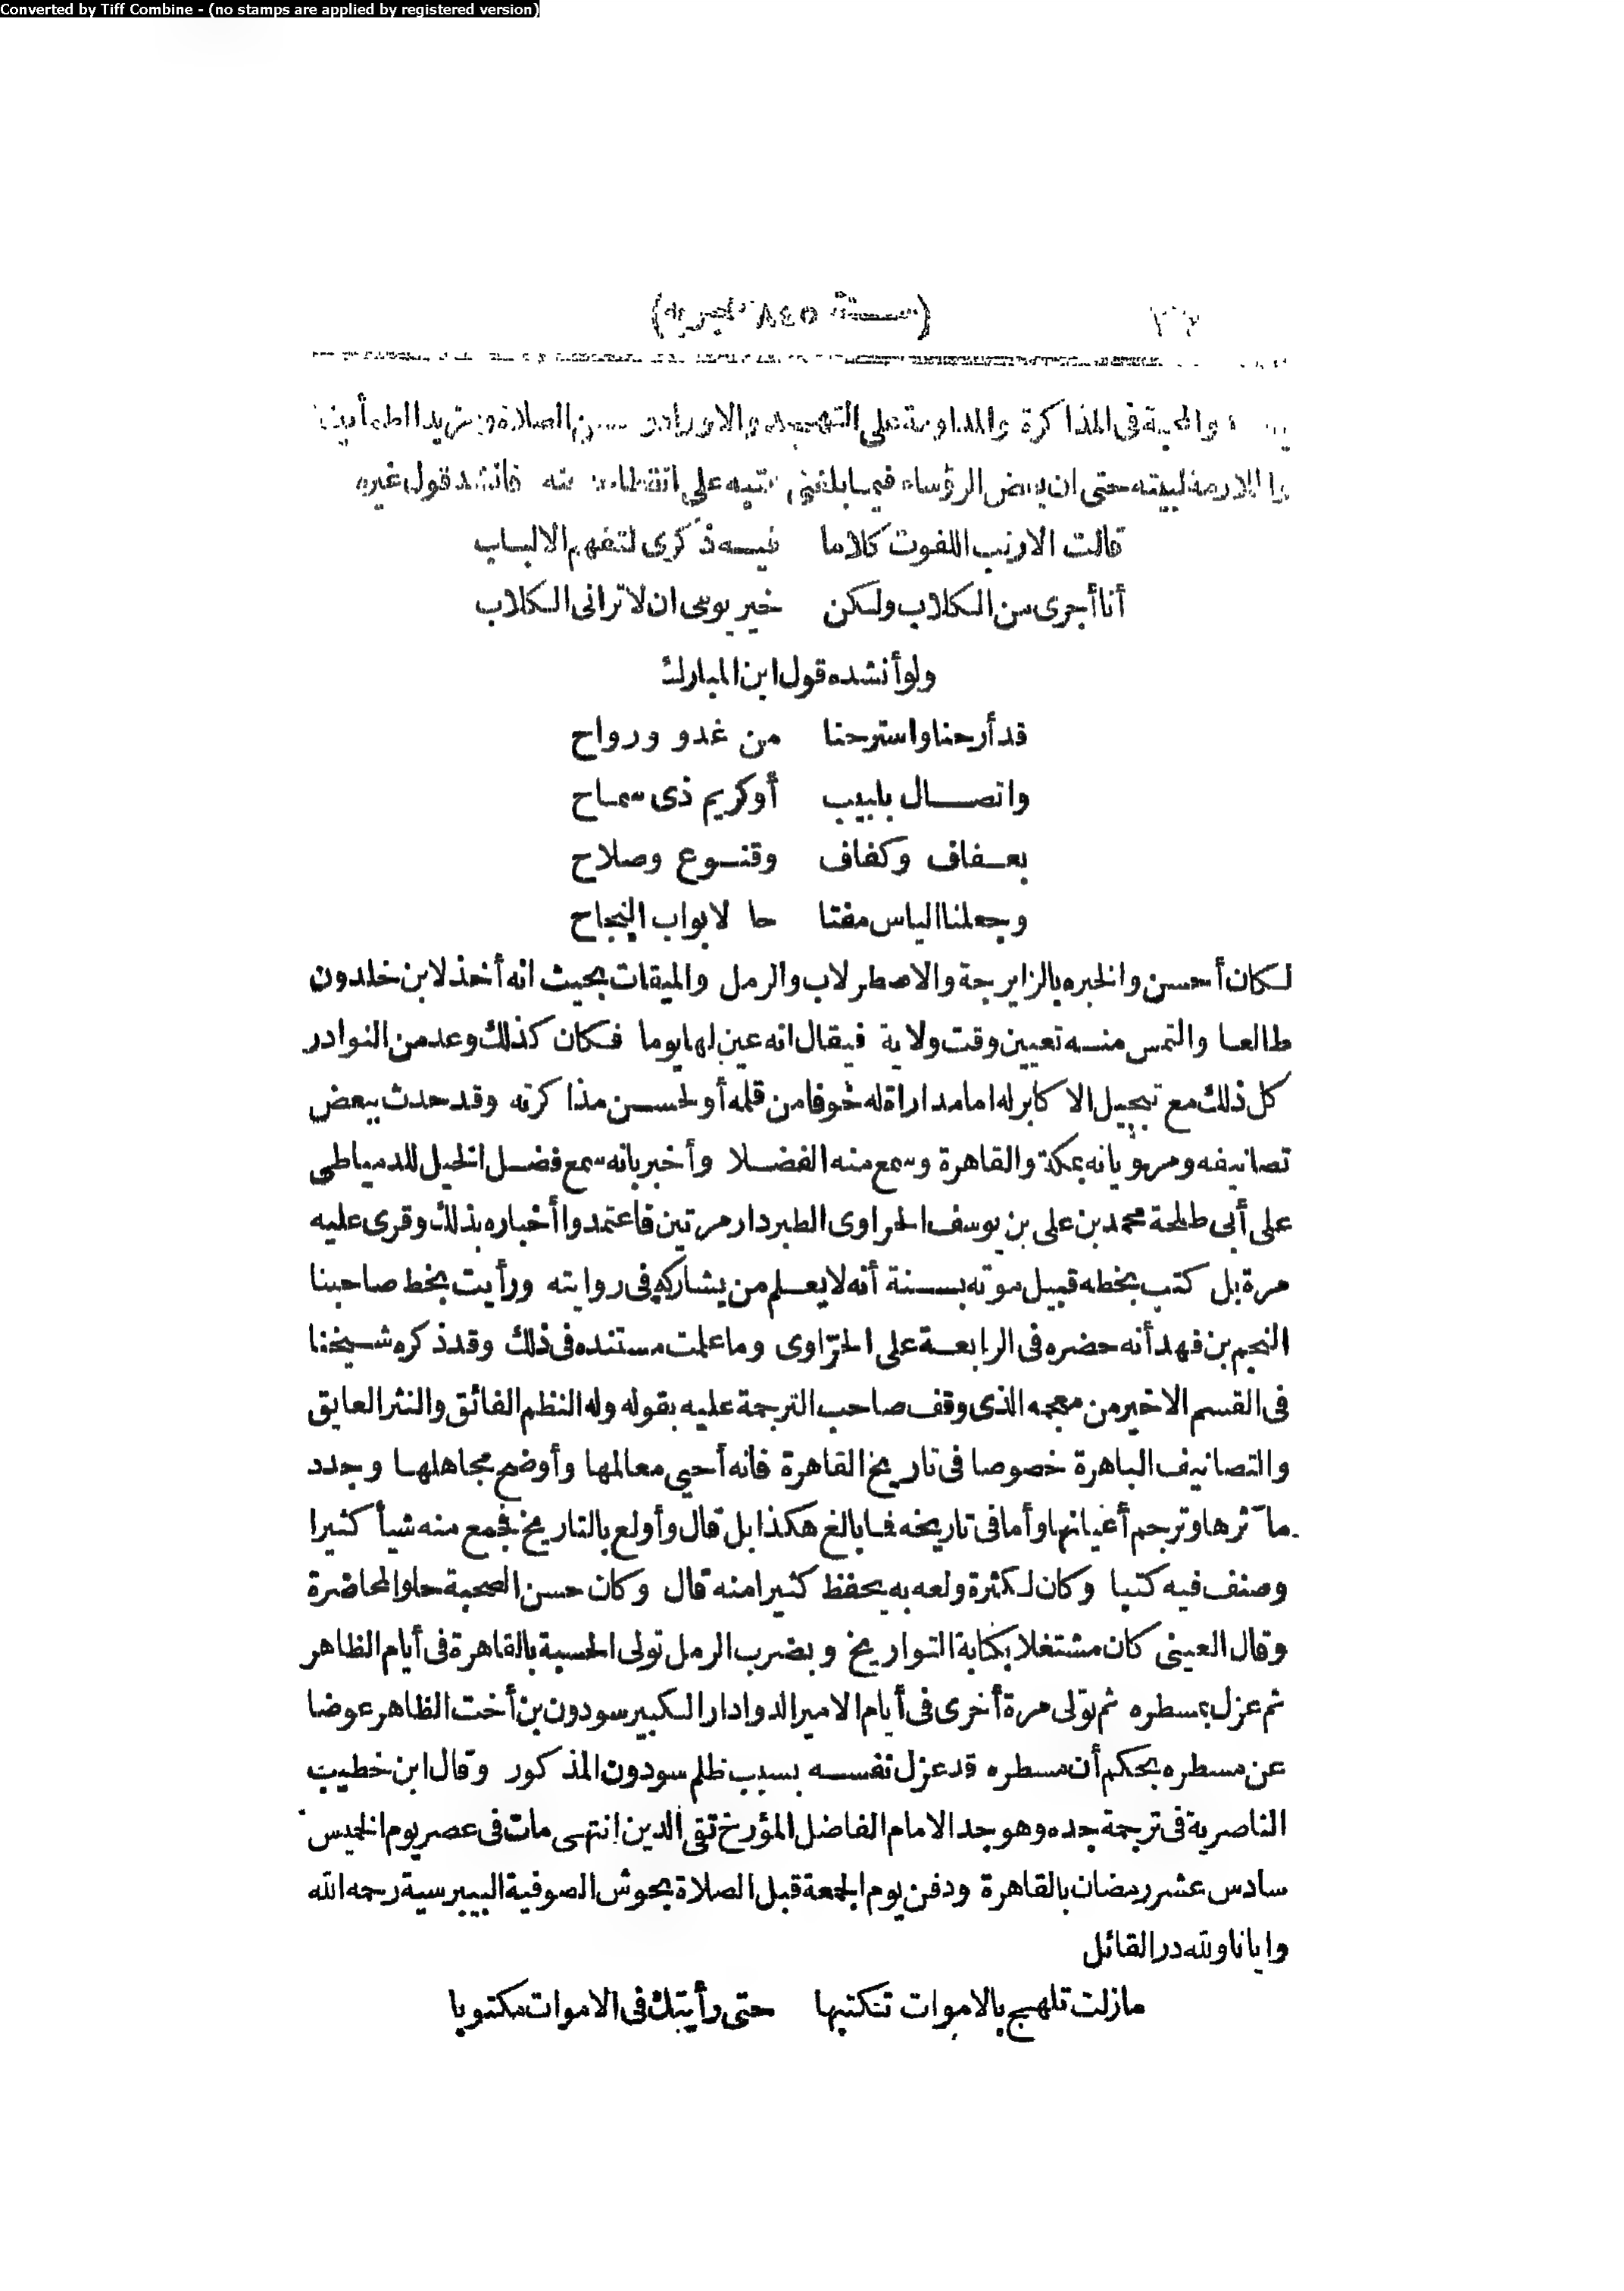 Converted by Tiff Combine - (no stamps are applied by registered version)
(سنة ٨٤٥ هجريه)
والمحبة فى المذاكرة والمداومة على التهجد والاوراد وحسن الصلاة ومزيد الطمأنينة
والملازمة لبيته حتى ان بعض الرؤساء فيما بلغنى عتبه على انقطاعه عنه فانشد قول غيره
قالت الارنب اللفوت كلاما فيه ذكرى لتفهم الالباب
أنا أجرى من الكلاب ولكن خير يومى ان لا ترانى الكلاب
ولو أنشده قول ابن المبارك
قد أرحنا واسترحنا من غدو ورواح
واتصال بلبيب أو كريم ذى سماح
بعفاف وكفاف وقنوع وصلاح
وجعلنا الياس مفتا حا لابواب النجاح
لكان أحسن والخبره بالزايرجة والاصطرلاب والرمل والميقات بحيث انه أخذ لابن خلدون
طالعا والتمس منه تعيين وقت ولاية فيقال انه عين لها يوما فكان كذلك وعد من النوادر
كل ذلك مع تبجيل الاكابر له اما مداراة له خوفا من قلمه أو لحسن مذاكرته وقد حدث ببعض
تصانيفه ومروياته بمكة والقاهرة وسمع منه الفضلا وأخبر بانه سمع فضل الخيل للدمياطى
على أبى طلحة محمد بن على بن يوسف الحراوى الطبردار مرتين فاعتمدوا أخباره بذلك وقرى عليه
مرة بل كتب بخطه قبيل موته بسنة أنه لا يعلم من يشاركه فى روايته ورأيت بخط صاحبنا
النجم بن فهد أنه حضره فى الرابعة على الحرّاوى وما علمت مستنده فى ذلك وقد ذكره شيخنا
فى القسم الاخير من معجمه الذى وقف صاحب الترجمة عليه بقوله وله النظم الفائق والنثر العايق
والتصانيف الباهرة خصوصا فى تاريخ القاهرة فانه أحيى معالمها وأوضح مجاهلها وجدد
مآثرها وترجم أعيانها وأما فى تاريخه فما بالغ هكذا بل قال وأولع بالتاريخ فجمع منه شيأ كثيرا
وصنف فيه كتبا وكان لكثرة ولعه به يحفظ كثيرا منه قال وكان حسن الصحبة حلو المحاضرة
وقال العينى كان مشتغلا بكتابة التواريخ وبضرب الرمل تولى الحسبة بالقاهرة فى أيام الظاهر
ثم عزل بمسطره ثم تولى مرة أخرى فى أيام الامير الدوادار الكبير سودون بن أخت الظاهر عوضا
عن مسطره بحكم أن مسطره قد عزل نفسه بسبب ظلم سودون المذكور وقال ابن خطيب
الناصرية فى ترجمة جده وهو جد الامام الفاضل المؤرخ تقى الدين انتهى مات فى عصر يوم الخميس
سادس عشر رمضان بالقاهرة ودفن يوم الجمعة قبل الصلاة بحوش الصوفية البيبرسية رحمه الله
وايانا ولله در القائل
مازلت تلهج بالاموات تكتبها حتى رأيتك فى الاموات مكتوبا